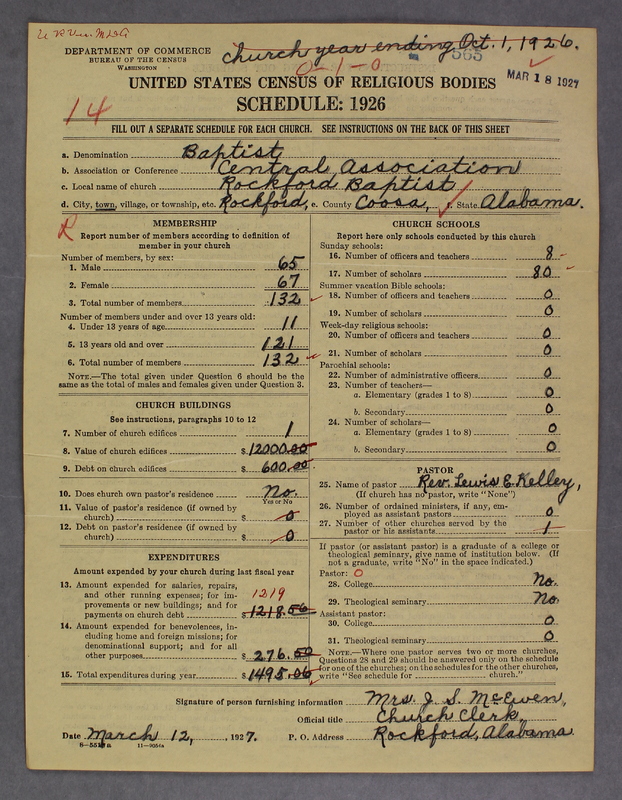 U.R.Ver. M.D.G
church year ending Oct. 1, 1926.
DEPARTMENT OF COMMERCE
BUREAU OF THE CENSUS
WASHINGTON
0-1-0
565
MAR 18 1927
UNITED STATES CENSUS OF RELIGIOUS BODIES
SCHEDULE: 1926
14
FILL OUT A SEPARATE SCHEDULE FOR EACH CHURCH. SEE INSTRUCTIONS ON THE BACK OF THIS SHEET
a. Denomination Baptist
b. Association or Conference Central Association
c. Local name of church Rockford Baptist
d. City, town, village, or township, etc. Rockford, e. County Coosa, f. State Alabama.
R
MEMBERSHIP
Report number of members according to definition of
member in your church
Number of members, by sex:
1. Male 65
2. Female 67
3. Total number of members 132
Number of members under and over 13 years old:
4. Under 13 years of age 11
5. 13 years old and over 121
6. Total number of members 132
NOTE.—The total given under Question 6 should be the
same as the total of males and females given under Question 3.
CHURCH BUILDINGS
See instructions, paragraphs 10 to 12
7. Number of church edifices 1
8. Value of church edifices $ 12000.00
9. Debt on church edifices $ 600.00
10. Does church own pastor's residence No.
Yes or No
11. Value of pastor's residence (if owned by
church) $ 0
12. Debt on pastor's residence (if owned by
church) $ 0
EXPENDITURES
Amount expended by your church during last fiscal year
13. Amount expended for salaries, repairs,
and other running expenses; for im-
provements or new buildings; and for
payments on church debt $ 1218.56
1219
14. Amount expended for benevolences, in-
cluding home and foreign missions; for
denominational support; and for all
other purposes $ 276.50
15. Total expenditures during year $ 1495.06
CHURCH SCHOOLS
Report here only schools conducted by this church
Sunday schools:
16. Number of officers and teachers 8
17. Number of scholars 80
Summer vacation Bible schools:
18. Number of officers and teachers 0
19. Number of scholars 0
Week-day religious schools:
20. Number of officers and teachers 0
21. Number of scholars 0
Parochial schools:
22. Number of administrative officers 0
23. Number of teachers—
a. Elementary (grades 1 to 8) 0
b. Secondary 0
24. Number of scholars—
a. Elementary (grades 1 to 8) 0
b. Secondary 0
PASTOR
25. Name of pastor Rev. Lewis E. Kelley,
(If church has no pastor, write "None")
26. Number of ordained ministers, if any, em-
ployed as assistant pastors 0
27. Number of other churches served by the
pastor or his assistants 1
If pastor (or assistant pastor) is a graduate of a college or
theological seminary, give name of institution below. (If
not a graduate, write "No" in the space indicated.)
Pastor: 0
28. College No.
29. Theological seminary No.
Assistant pastor:
30. College 0
31. Theological seminary 0
NOTE.—Where one pastor serves two or more churches,
Questions 28 and 29 should be answered only on the schedule
for one of the churches; on the schedules for the other churches,
write "See schedule for church."
Signature of person furnishing information Mrs. J. S. McEwen,
Official title Church Clerk,
Date March 12, , 1927. P. O. Address Rockford, Alabama.
8-551a 11-9054a